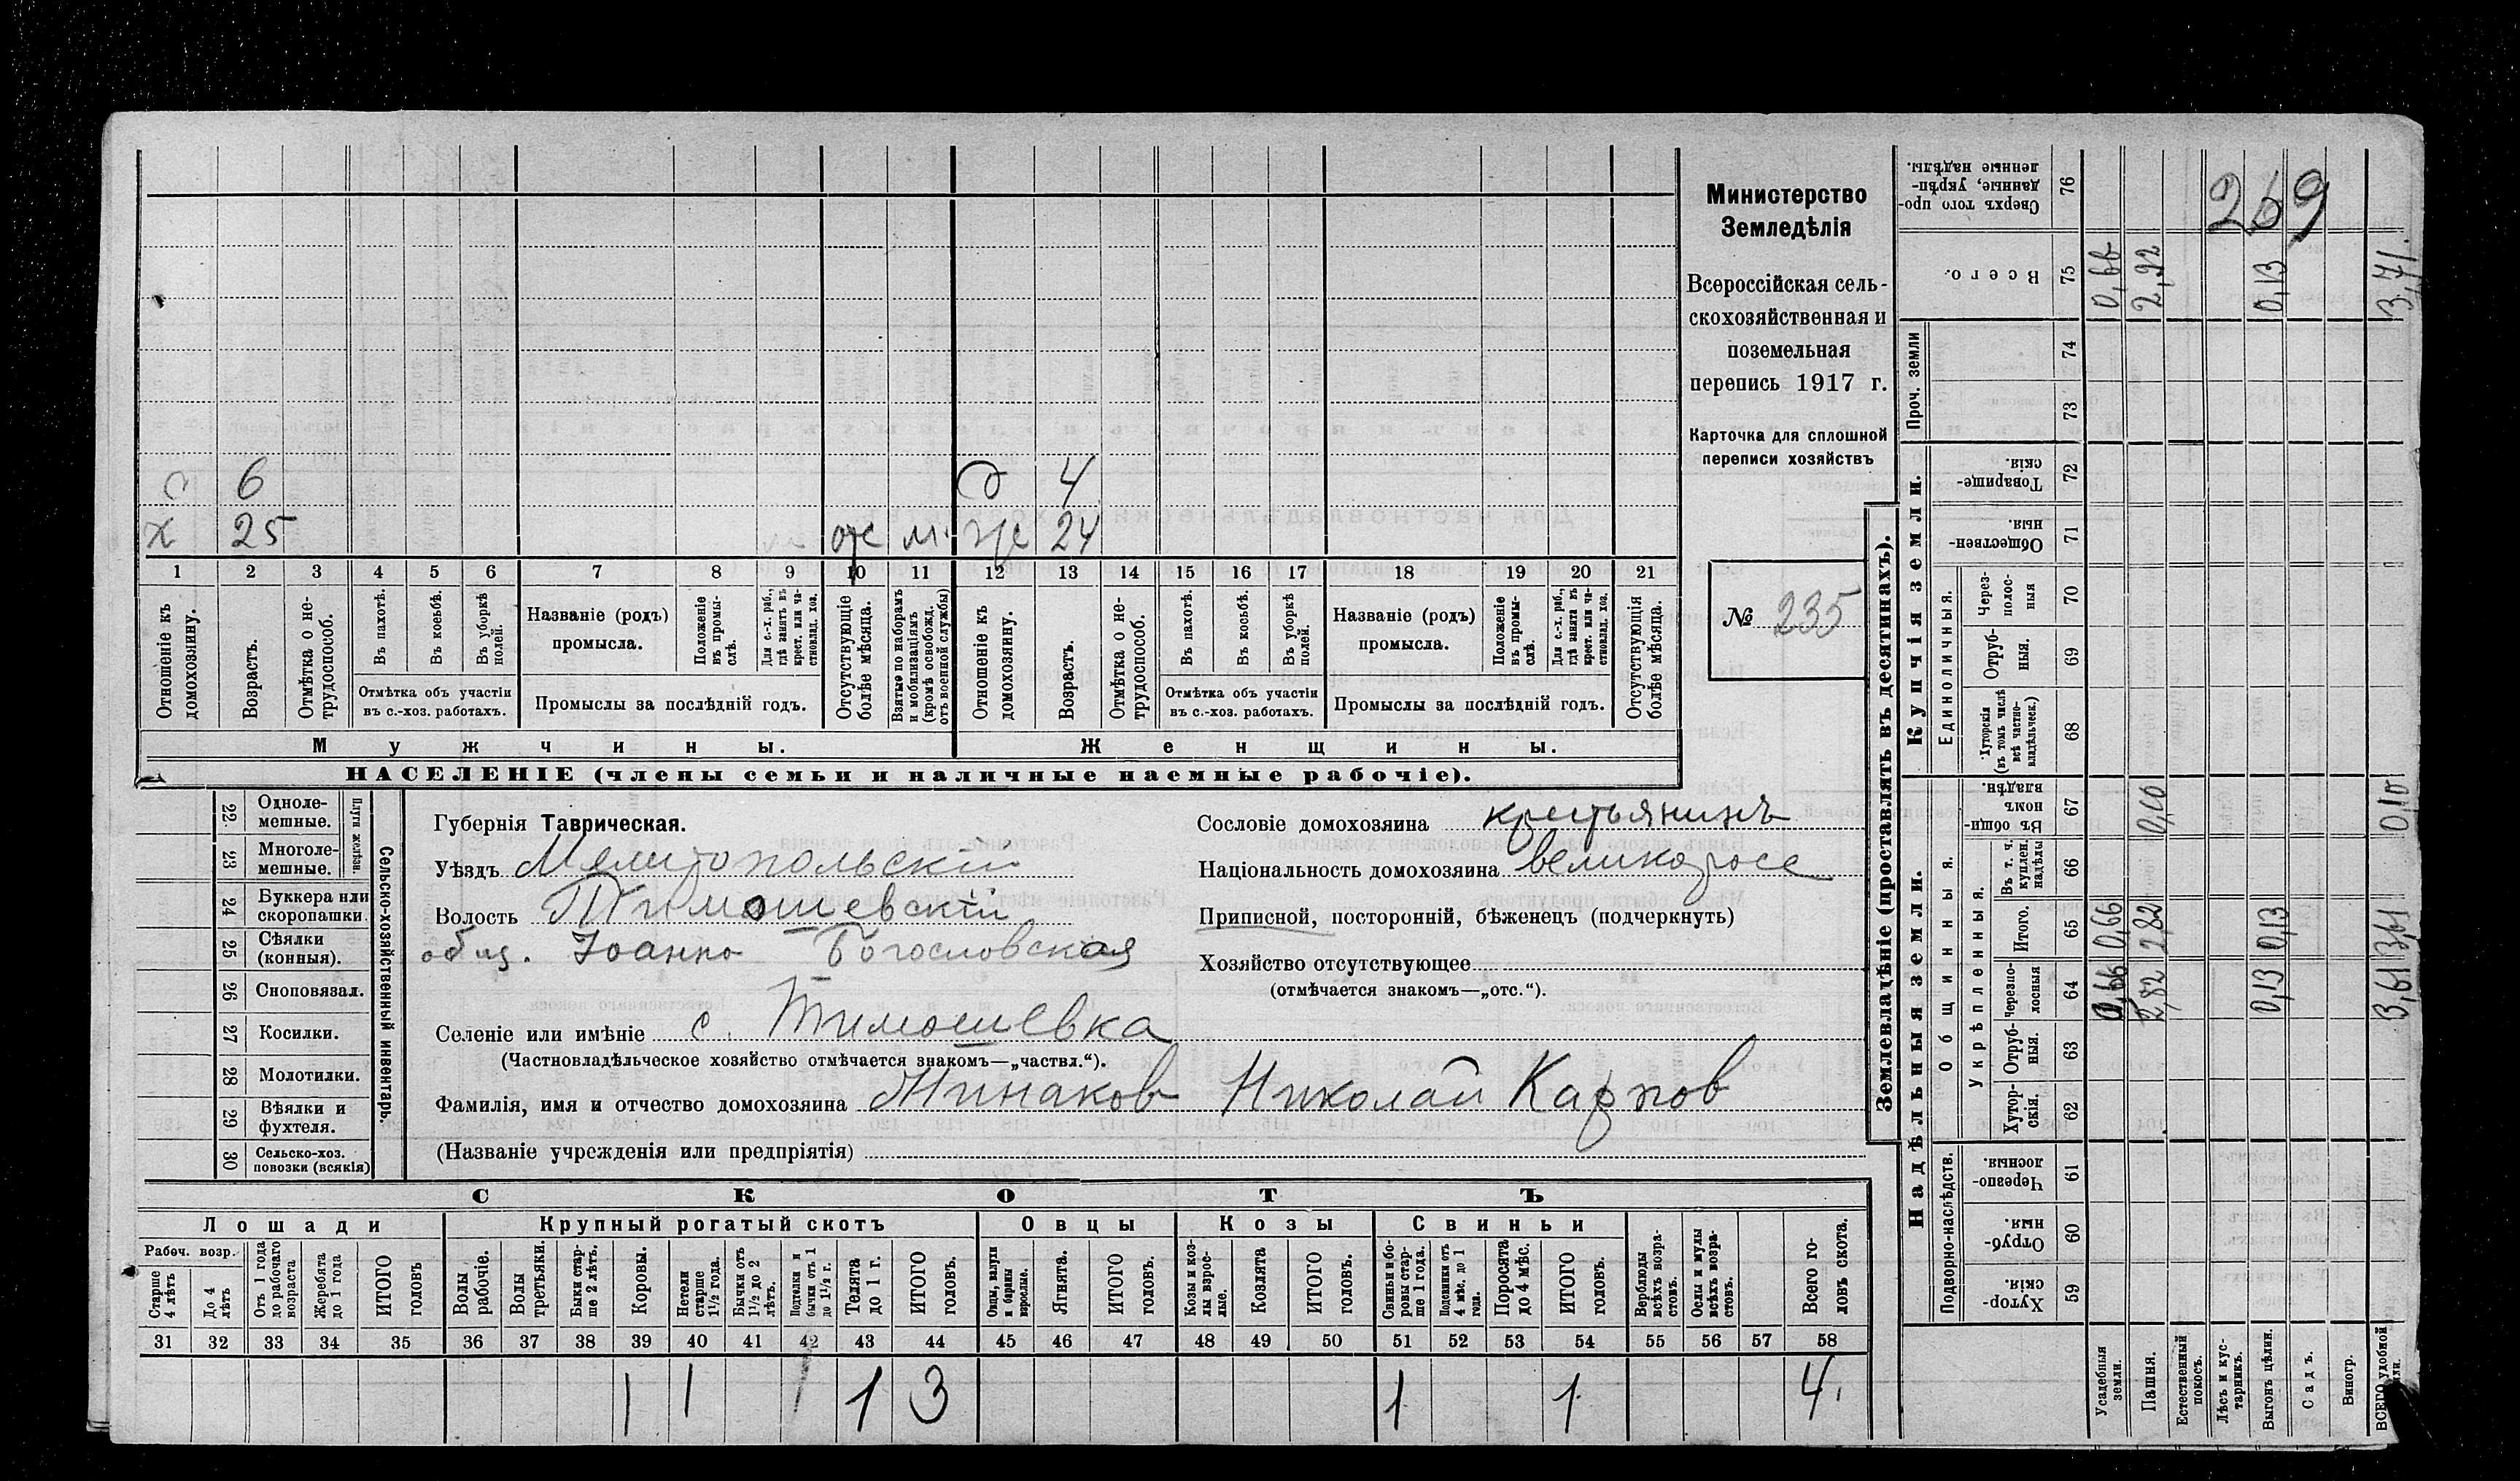 с 6 д 4
х 25 оте м. же 24
1 2 3 4 5 6 7 8 9 10 11 12 13 14 15 16 17 18 19 20 21
Отношеніе къ домохозяину.
Возрастъ.
Отмѣтка о не-
трудоспособ.
Въ пахотѣ.
Въ косьбѣ.
Въ уборкѣ
полей.
Отмѣтка объ участіи
въ с.-хоз. работахъ.
Названіе (родъ)
промысла.
Положеніе
въ промы-
слѣ.
Для с.-х. раб.,
гдѣ занятъ въ
крест. или ча-
стновлад. хоз.
Промыслы за послѣдній годъ.
Отсутствующіе
болѣе мѣсяца.
Взятые по наборамъ
и мобилизаціямъ
(кромѣ освобожд.
отъ военной службы)
Отношеніе къ
домохозяину.
Возрастъ.
Отмѣтка о не-
трудоспособ.
Въ пахотѣ.
Въ косьбѣ.
Въ уборкѣ
полей.
Отмѣтка объ участіи
въ с.-хоз. работахъ.
Названіе (родъ)
промысла.
Положеніе
въ промы-
слѣ.
Для с.-х. раб.,
гдѣ занята въ
крест. или ча-
стновлад. хоз.
Промыслы за послѣдній годъ.
Отсутствующія
болѣе мѣсяца.
Мужчины. Женщины.
НАСЕЛЕНІЕ (члены семьи и наличные наемные рабочіе).
Министерство
Земледѣлія
Всероссійская сель-
скохозяйственная и
поземельная
перепись 1917 г.
Карточка для сплошной
переписи хозяйствъ
№ 235
22 Одноле-
мешные.
23 Многоле-
мешные.
Плуги желѣзн.
24 Буккера или
скоропашки.
25 Сѣялки
(конныя).
26 Сноповязал.
27 Косилки.
28 Молотилки.
29 Вѣялки и
фухтеля.
30 Сельско-хоз.
повозки (всякія)
Сельско-хозяйственный инвентарь.
Губернія Таврическая.
Уѣздъ Мелитопольскій
Волость Тимошевскій
общ. Іоанно Богословская
Селеніе или имѣніе с. Тимошевка
(Частновладѣльческое хозяйство отмѣчается знакомъ—„частвл.“).
Фамилія, имя и отчество домохозяина Минаков Николай Карпов
(Названіе учрежденія или предпріятія)
Сословіе домохозяина крестьянинъ
Національность домохозяина великоросс
Приписной, посторонній, бѣженецъ (подчеркнуть)
Хозяйство отсутствующее
(отмѣчается знакомъ—„отс.“).
СКОТЪ
Лошади Крупный рогатый скотъ Овцы Козы Свиньи
Рабоч. возр.
Старше
4 лѣтъ
До 4
лѣтъ
Отъ 1 года
до рабочаго
возраста
Жеребята
до 1 года
ИТОГО
головъ
Волы
рабочіе.
Волы
третьяки.
Быки стар-
ше 2 лѣтъ.
Коровы.
Нетели
старше
1½ года.
Бычки отъ
1½ до 2
лѣтъ.
Подтелки и
бычки отъ 1
до 1½ г.
Телята
до 1 г.
ИТОГО
головъ.
Овцы, валухи
и бараны
взрослые.
Ягнята.
ИТОГО
головъ.
Козы и коз-
лы взрос-
лые.
Козлята
ИТОГО
головъ.
Свиньи и бо-
ровы стар-
ше 1 года.
Подсвинки отъ
4 мѣс. до 1
года.
Поросята
до 4 мѣс.
ИТОГО
головъ.
Верблюды
всѣхъ возра-
стовъ.
Ослы и мулы
всѣхъ возра-
стовъ.
Всего го-
ловъ скота.
31 32 33 34 35 36 37 38 39 40 41 42 43 44 45 46 47 48 49 50 51 52 53 54 55 56 57 58
1 1 1 3 1 1 4.
Землевладѣніе (проставлять въ десятинахъ).
Надѣльныя земли. Купчія земли.
Проч. земли
Подворно-наслѣдств.
Общинныя.
Укрѣпленныя.
Единоличныя.
Хутор-
скія. 59
Отруб-
ныя. 60
Черезпо-
лосныя 61
Хутор-
скія. 62
Отруб-
ныя. 63
Черезпо-
лосныя 64
Итого. 65
Въ т. ч.
куплен.
надѣлы 66
Въ общи-
номъ
владѣн. 67
Хуторскія
(въ томъ числѣ
всѣ частно-
владѣльческ.) 68
Отруб-
ныя. 69
Через-
полос-
ныя 70
Обществен-
ныя. 71
Товарище-
скія 72
73
74
Всего. 75
Сверхъ того про-
данные, укрѣп-
ленные надѣлы. 76
Усадебныя
земли. 0,66 0,66 0,66
Пашня. 2,82 2,82 0,10 2,92
Естественный
покосъ.
Лѣсъ и кус-
тарникъ.
Выгонъ цѣлин. 0,13 0,13 0,13
Садъ.
Виногр.
ВСЕГО удобной 3,61 3,61 0,10 3,71.
269